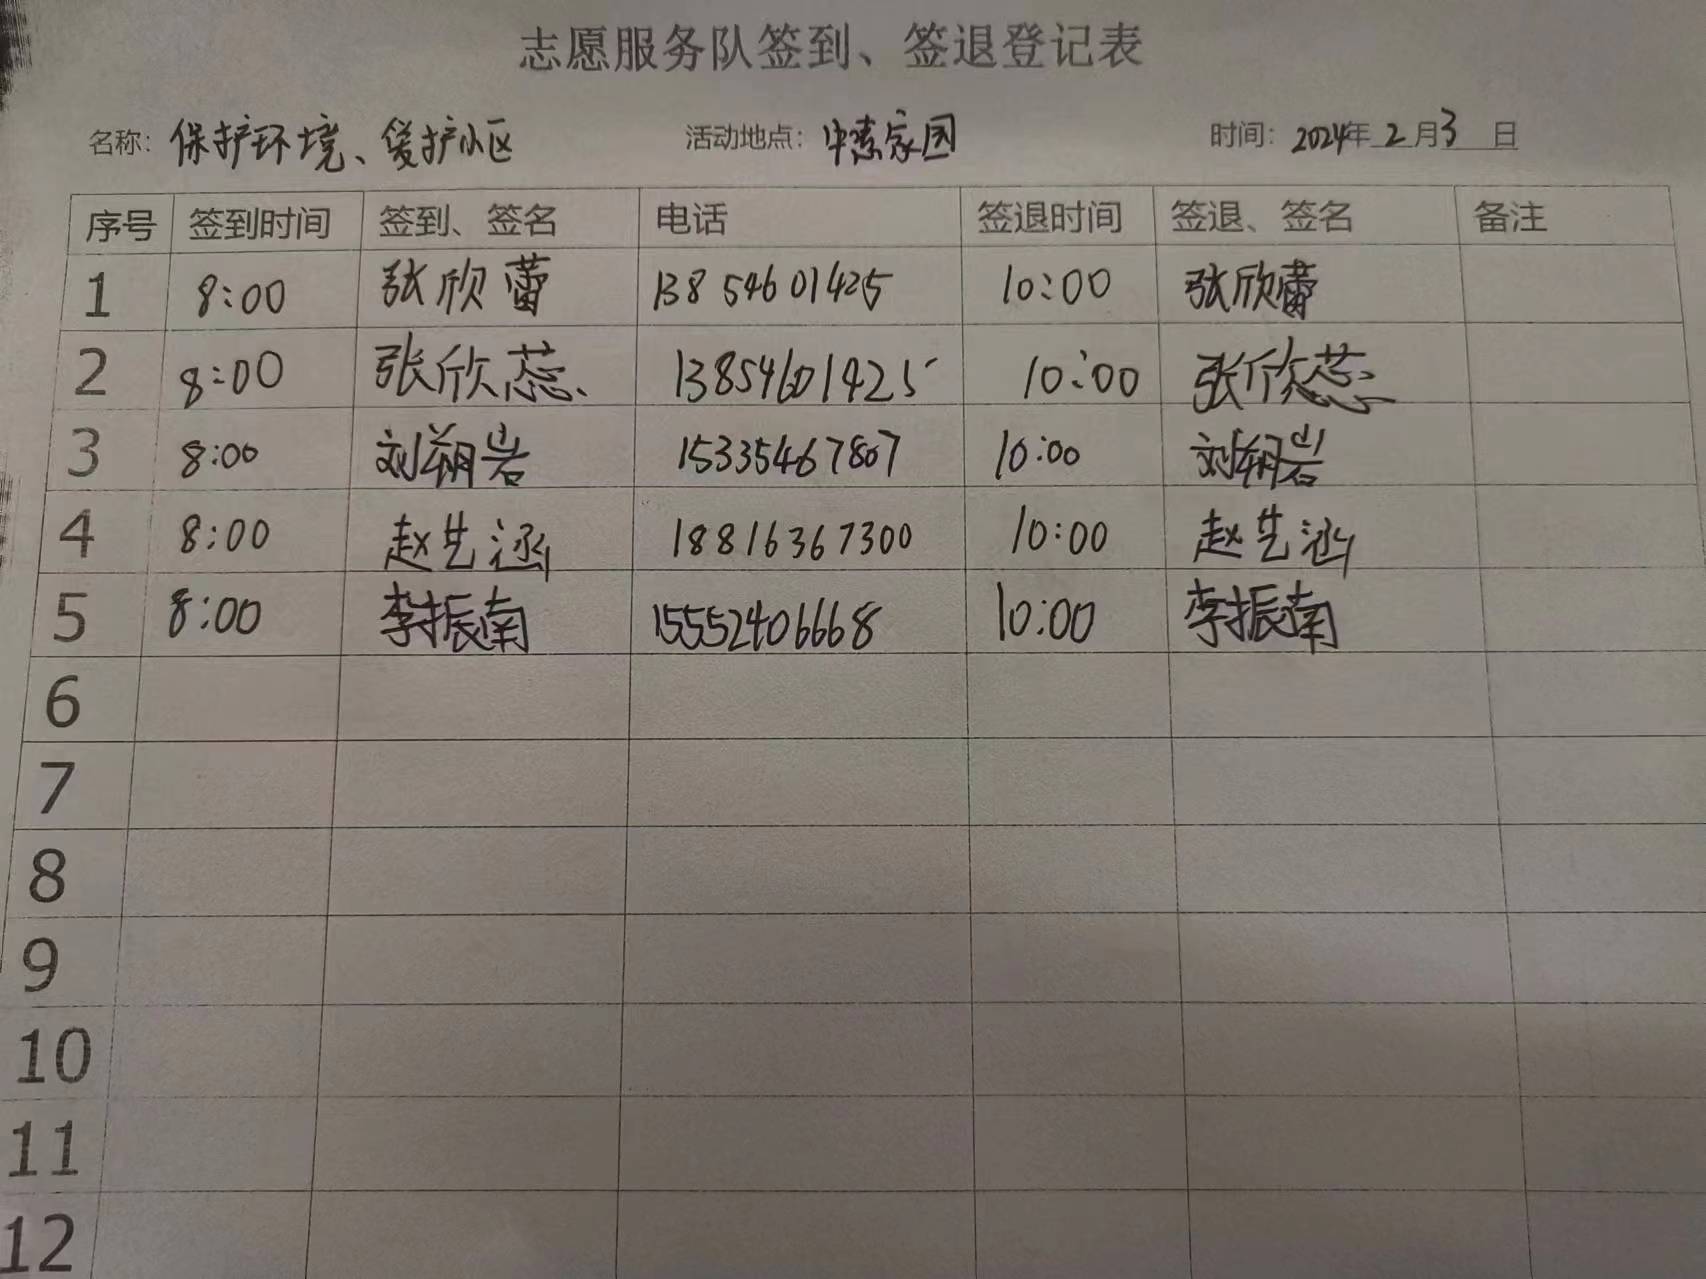 志愿服务队签到、签退登记表
名称：保护环境、爱护小区 活动地点：中惠家园 时间：2024年2月3日
序号 签到时间 签到、签名 电话 签退时间 签退、签名 备注
1 8:00 张欣蕾 13854601425 10:00 张欣蕾
2 8:00 张欣蕊 13854601425 10:00 张欣蕊
3 8:00 刘朔岩 15335467807 10:00 刘朔岩
4 8:00 赵艺涵 18816367300 10:00 赵艺涵
5 8:00 李振南 15552406668 10:00 李振南
6
7
8
9
10
11
12